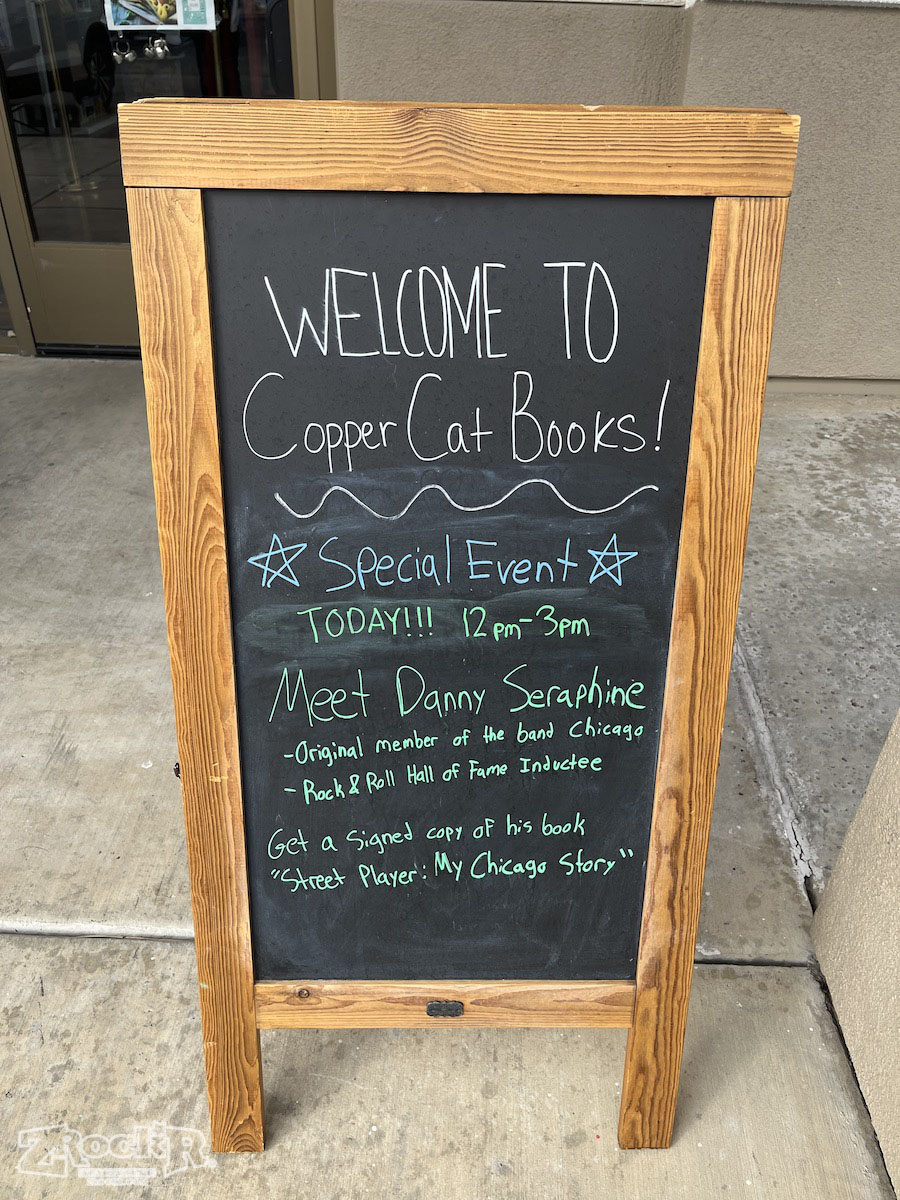 WELCOME TO
Copper Cat Books!
Special Event
TODAY!!! 12pm-3pm
Meet Danny Seraphine
-Original member of the band Chicago
- Rock & Roll Hall of Fame Inductee
Get a signed copy of his book
"Street Player: My Chicago Story"
ZRock'R